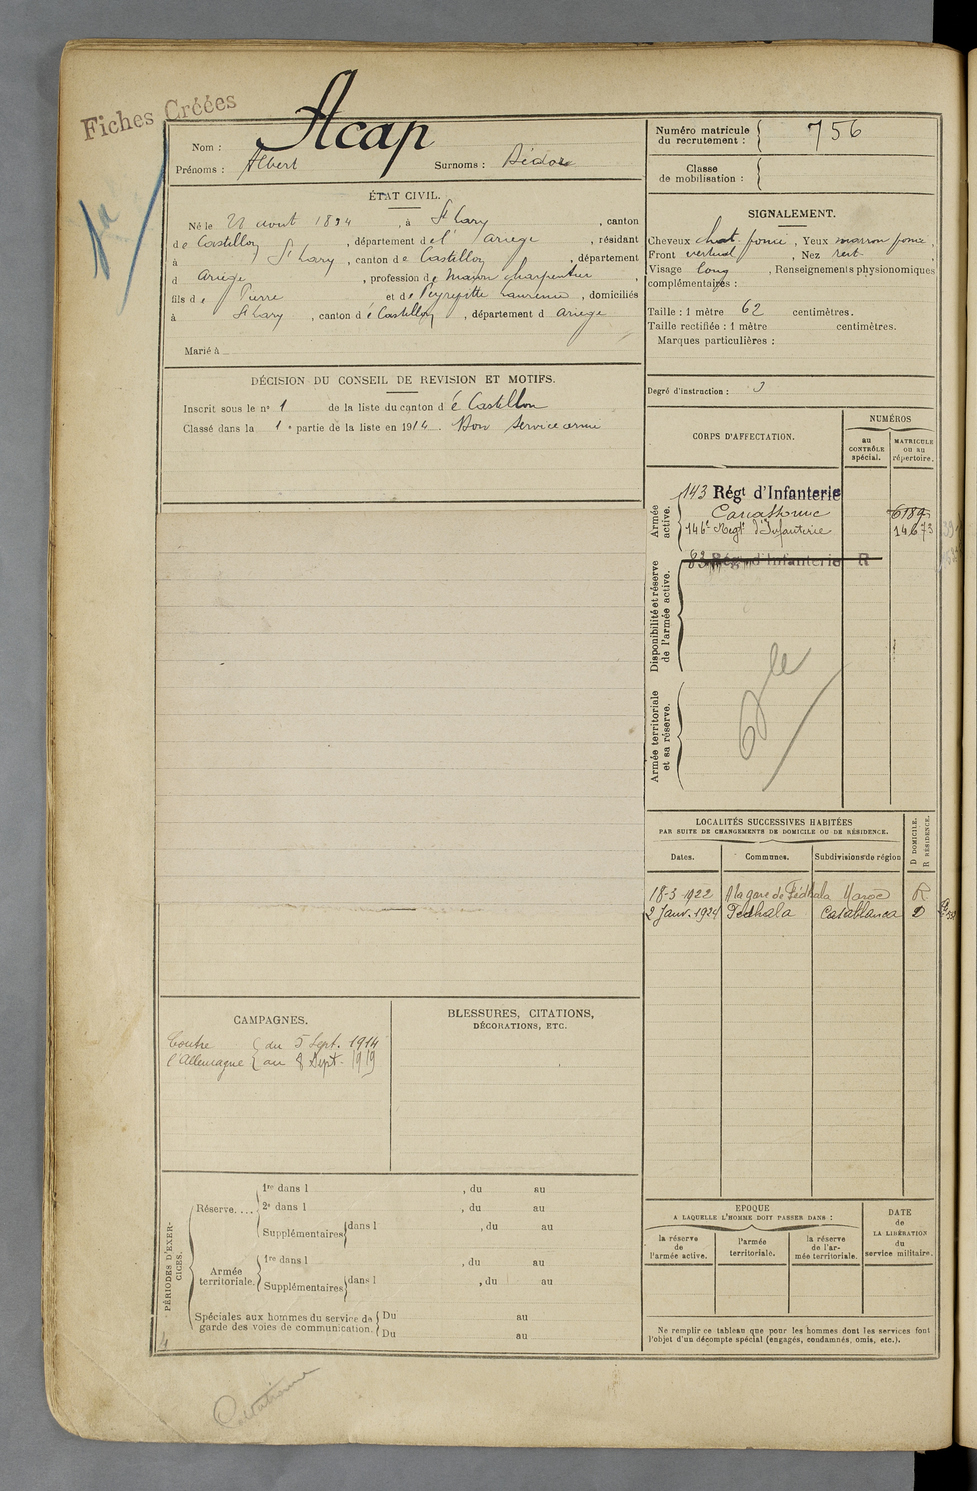 Fiches Créées
Nom : Acap
Prénoms : Albert Surnoms :
Numéro matricule du recrutement : 756
Classe de mobilisation :
ÉTAT CIVIL.
Né le août 1894, à St Lary, canton
de Castillon, département de l' Ariège, résidant
à St Lary, canton de Castillon, département
d Ariège, profession de maçon charpentier,
fils de Pierre et de Peyrefitte Laurence, domiciliés
à St Lary, canton d é Castillon, département d Ariège
Marié à
DÉCISION DU CONSEIL DE REVISION ET MOTIFS.
Inscrit sous le n° 1 de la liste du canton d é Castillon
Classé dans la 1e partie de la liste en 1914. Bon Service armé
SIGNALEMENT.
Cheveux chat. foncé, Yeux marron foncé,
Front vertical, Nez rect.,
Visage long, Renseignements physionomiques
complémentaires :
Taille : 1 mètre 62 centimètres.
Taille rectifiée : 1 mètre centimètres.
Marques particulières :
Degré d'instruction : 3
CORPS D'AFFECTATION.
NUMÉROS
au CONTRÔLE spécial.
MATRICULE ou au répertoire.
Armée active.
143 Régt d'Infanterie
Carcassonne 6184
146e Régt d'Infanterie 14673
Disponibilité et réserve de l'armée active.
83 Régt d'Infanterie R
Armée territoriale et sa réserve.
LOCALITÉS SUCCESSIVES HABITÉES
PAR SUITE DE CHANGEMENTS DE DOMICILE OU DE RÉSIDENCE.
D DOMICILE.
R RÉSIDENCE.
Dates. Communes. Subdivisions de région
18-3-1922 A la gare de Fédhala Maroc R
2 Janv. 1924 Fédhala Casablanca D
CAMPAGNES.
Contre du 5 Sept. 1914
l'Allemagne au 8 Sept. 1919
BLESSURES, CITATIONS,
DÉCORATIONS, ETC.
PÉRIODES D'EXERCICES.
Réserve....
1re dans 1 , du au
2e dans 1 , du au
Supplémentaires dans 1 , du au
Armée territoriale.
1re dans 1 , du au
Supplémentaires dans 1 , du au
Spéciales aux hommes du service de
garde des voies de communication.
Du au
Du au
EPOQUE
A LAQUELLE L'HOMME DOIT PASSER DANS :
la réserve de l'armée active.
l'armée territoriale.
la réserve de l'armée territoriale.
DATE de LA LIBÉRATION du service militaire.
Ne remplir ce tableau que pour les hommes dont les services font
l'objet d'un décompte spécial (engagés, condamnés, omis, etc.).